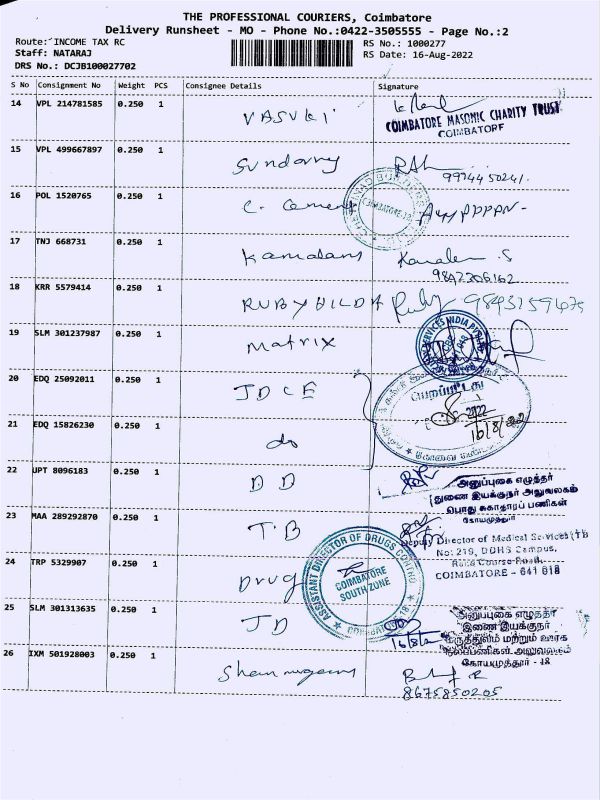 THE PROFESSIONAL COURIERS, Coimbatore
Delivery Runsheet - MO - Phone No.:0422-3505555 - Page No.:2
Route: INCOME TAX RC
RS No.: 1000277
Staff: NATARAJ
RS Date: 16-Aug-2022
DRS No.: DCJB100027702
S No Consignment No Weight PCS Consignee Details Signature
14 VPL 214781585 0.250 1 VASUKI
COIMBATORE MASONIC CHARITY TRUST
COIMBATORE
15 VPL 499667897 0.250 1
16 POL 1520765 0.250 1
17 TNJ 668731 0.250 1
9842206162
18 KRR 5579414 0.250 1 RUBY HILDA Ruby
19 SLM 301237987 0.250 1 Matrix
20 EDQ 25092011 0.250 1 JDCE
பெறப்பட்டது
21 EDQ 15826230 0.250 1 do
16/8/
22 JPT 8096183 0.250 1 DD
அனுப்புகை எழுத்தர்
துணை இயக்குநர் அலுவலகம்
பொது சுகாதாரப் பணிகள்
கோயமுத்தூர்
23 MAA 289292870 0.250 1 T.B
Deputy Director of Medical Services (TB
No: 219, DDHS Campus,
Race Course Road,
COIMBATORE - 641 018
24 TRP 5329907 0.250 1 Drug
ASSISTANT DIRECTOR OF DRUGS CONTROL
COIMBATORE
SOUTH ZONE
25 SLM 301313635 0.250 1 JD
16/8/2
அனுப்புகை எழுத்தர்
இணை இயக்குநர்
மருத்துவம் மற்றும் ஊரக
நலப்பணிகள் அலுவலகம்
கோயமுத்தூர் - 18
26 IXM 501928003 0.250 1
8675850205